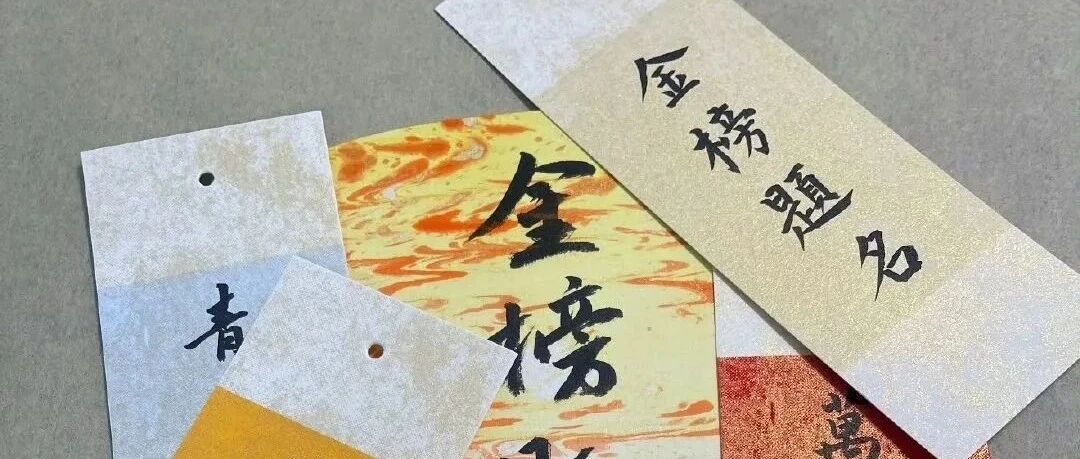 青
金榜
金榜題名
萬